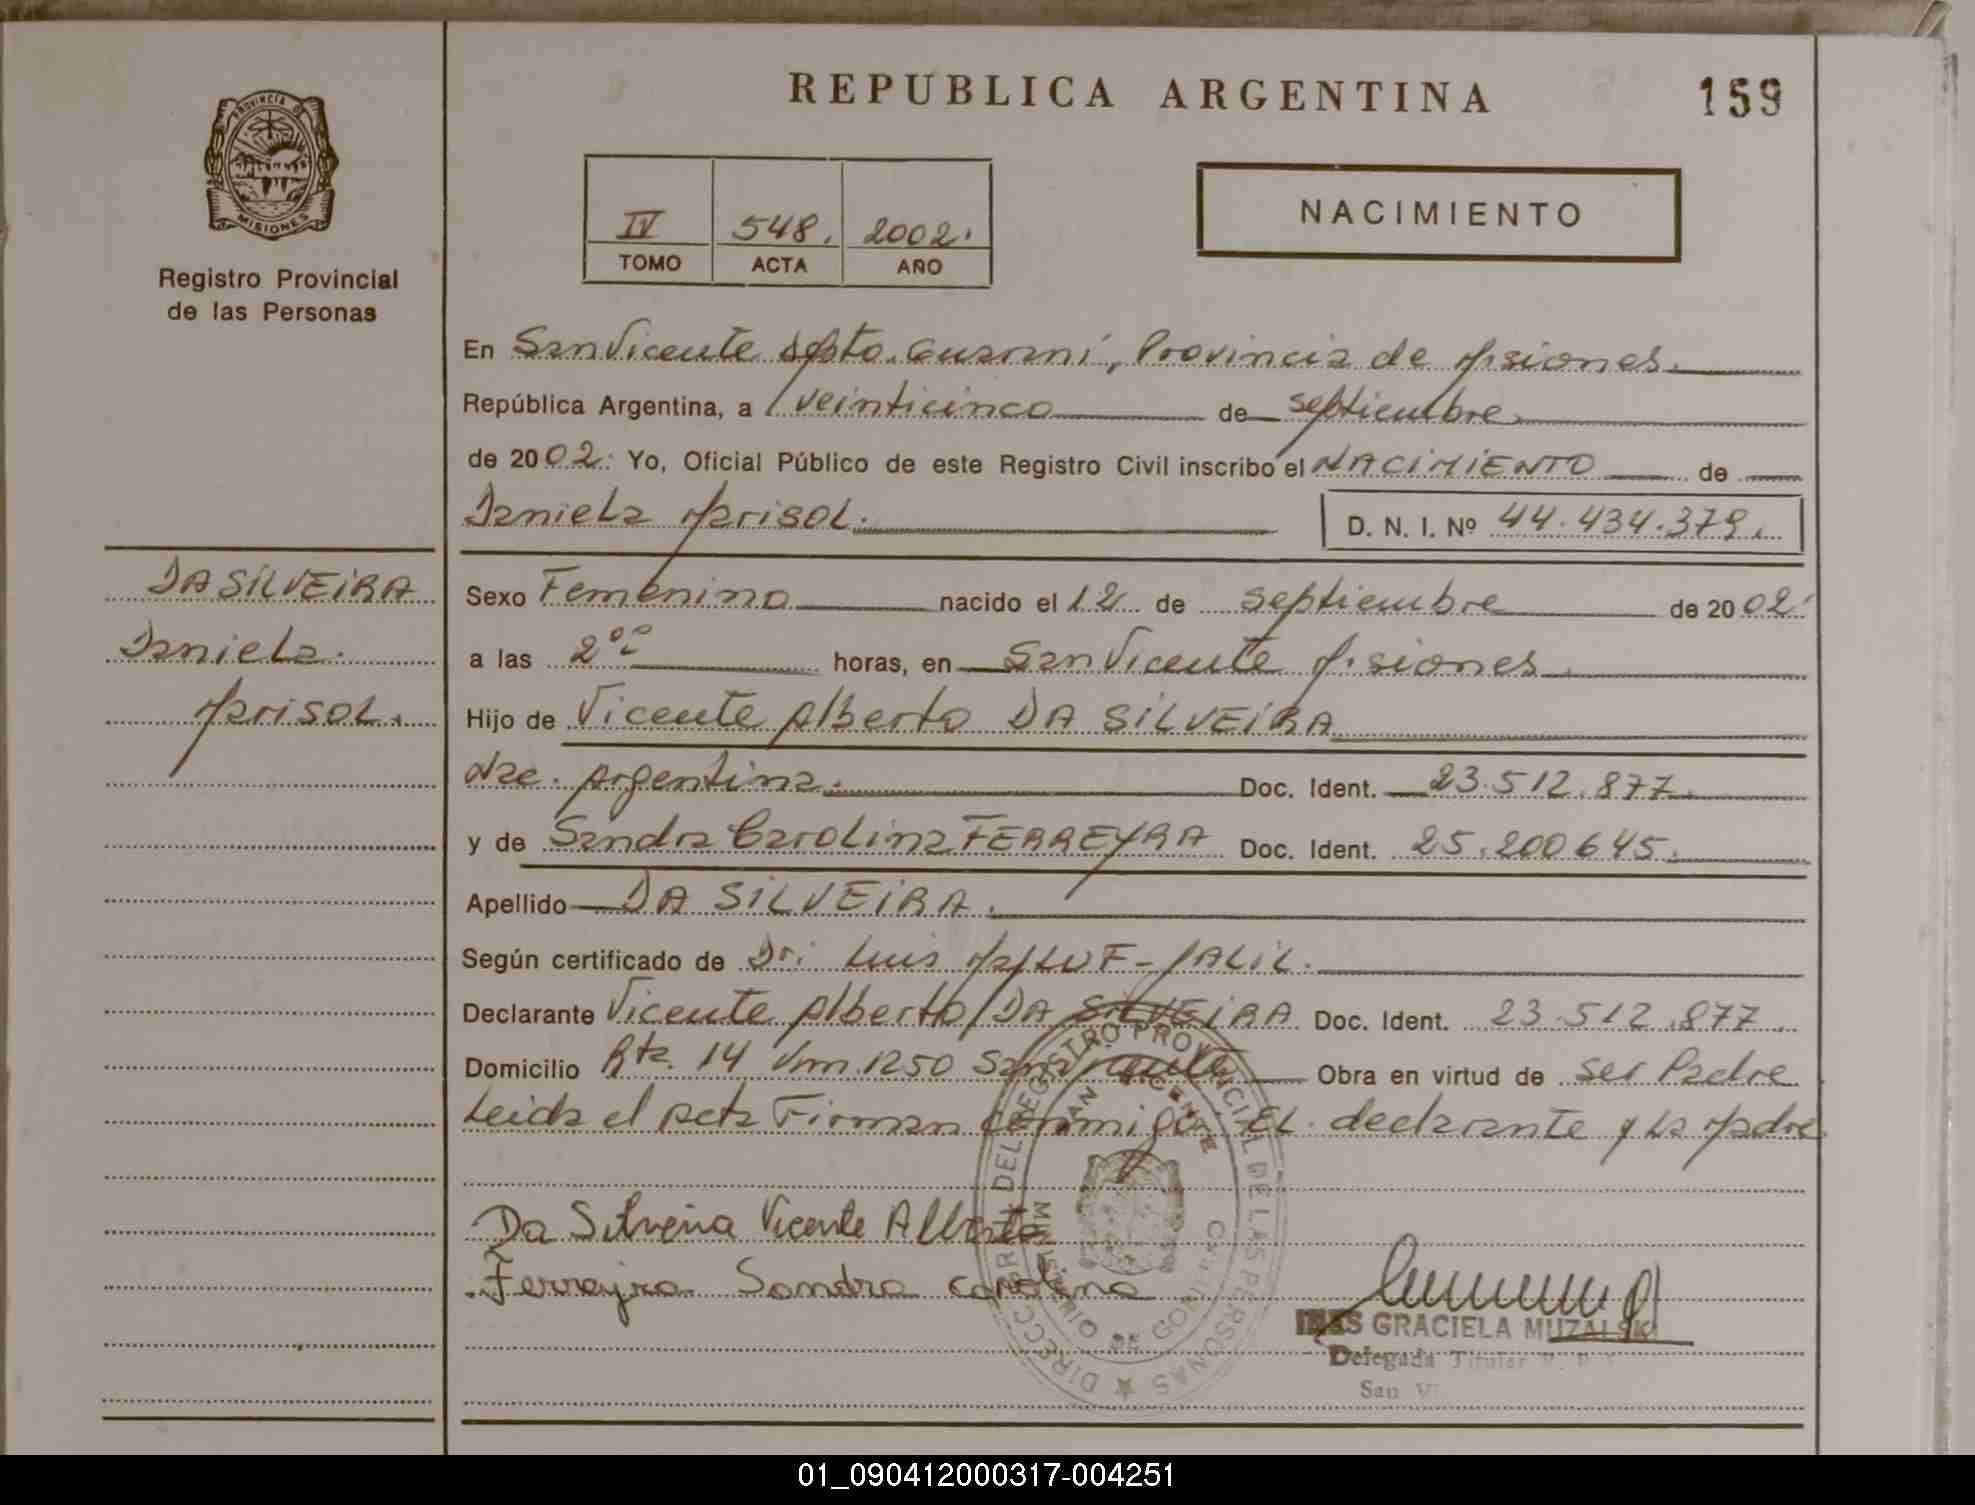 REPUBLICA ARGENTINA
159
PROVINCIA DE
MISIONES
Registro Provincial
de las Personas
IV 548. 2002.
TOMO ACTA AÑO
NACIMIENTO
En San Vicente Dpto. Guaraní, Provincia de Misiones.
República Argentina, a veinticinco de septiembre
de 2002. Yo, Oficial Público de este Registro Civil inscribo el NACIMIENTO de
Daniela Marisol. D. N. I. Nº 44.434.379.
DA SILVEIRA
Daniela
Marisol.
Sexo Femenino nacido el 12 de septiembre de 2002.
a las 2 horas, en San Vicente Misiones
Hijo de Vicente Alberto DA SILVEIRA
Nac. Argentina. Doc. Ident. 23.512.877.
y de Sandra Carolina FERREYRA Doc. Ident. 25.200645.
Apellido DA SILVEIRA.
Según certificado de Dr. Luis JALIL.
Declarante Vicente Alberto DA SILVEIRA Doc. Ident. 23.512.877.
Domicilio Rta. 14 Km 1250 San Vicente Obra en virtud de ser Padre
Leida el acta Firman conmigo. EL declarante y la Madre
Da Silveira Vicente Alberto
Ferreyra Sandra carolina
DIRECC. GRAL. DEL REGISTRO PROVINCIAL DE LAS PERSONAS
SAN VICENTE
MINISTERIO DE GOBIERNO
INES GRACIELA MUZALSKI
Delegada Titular
San Vi
01_090412000317-004251